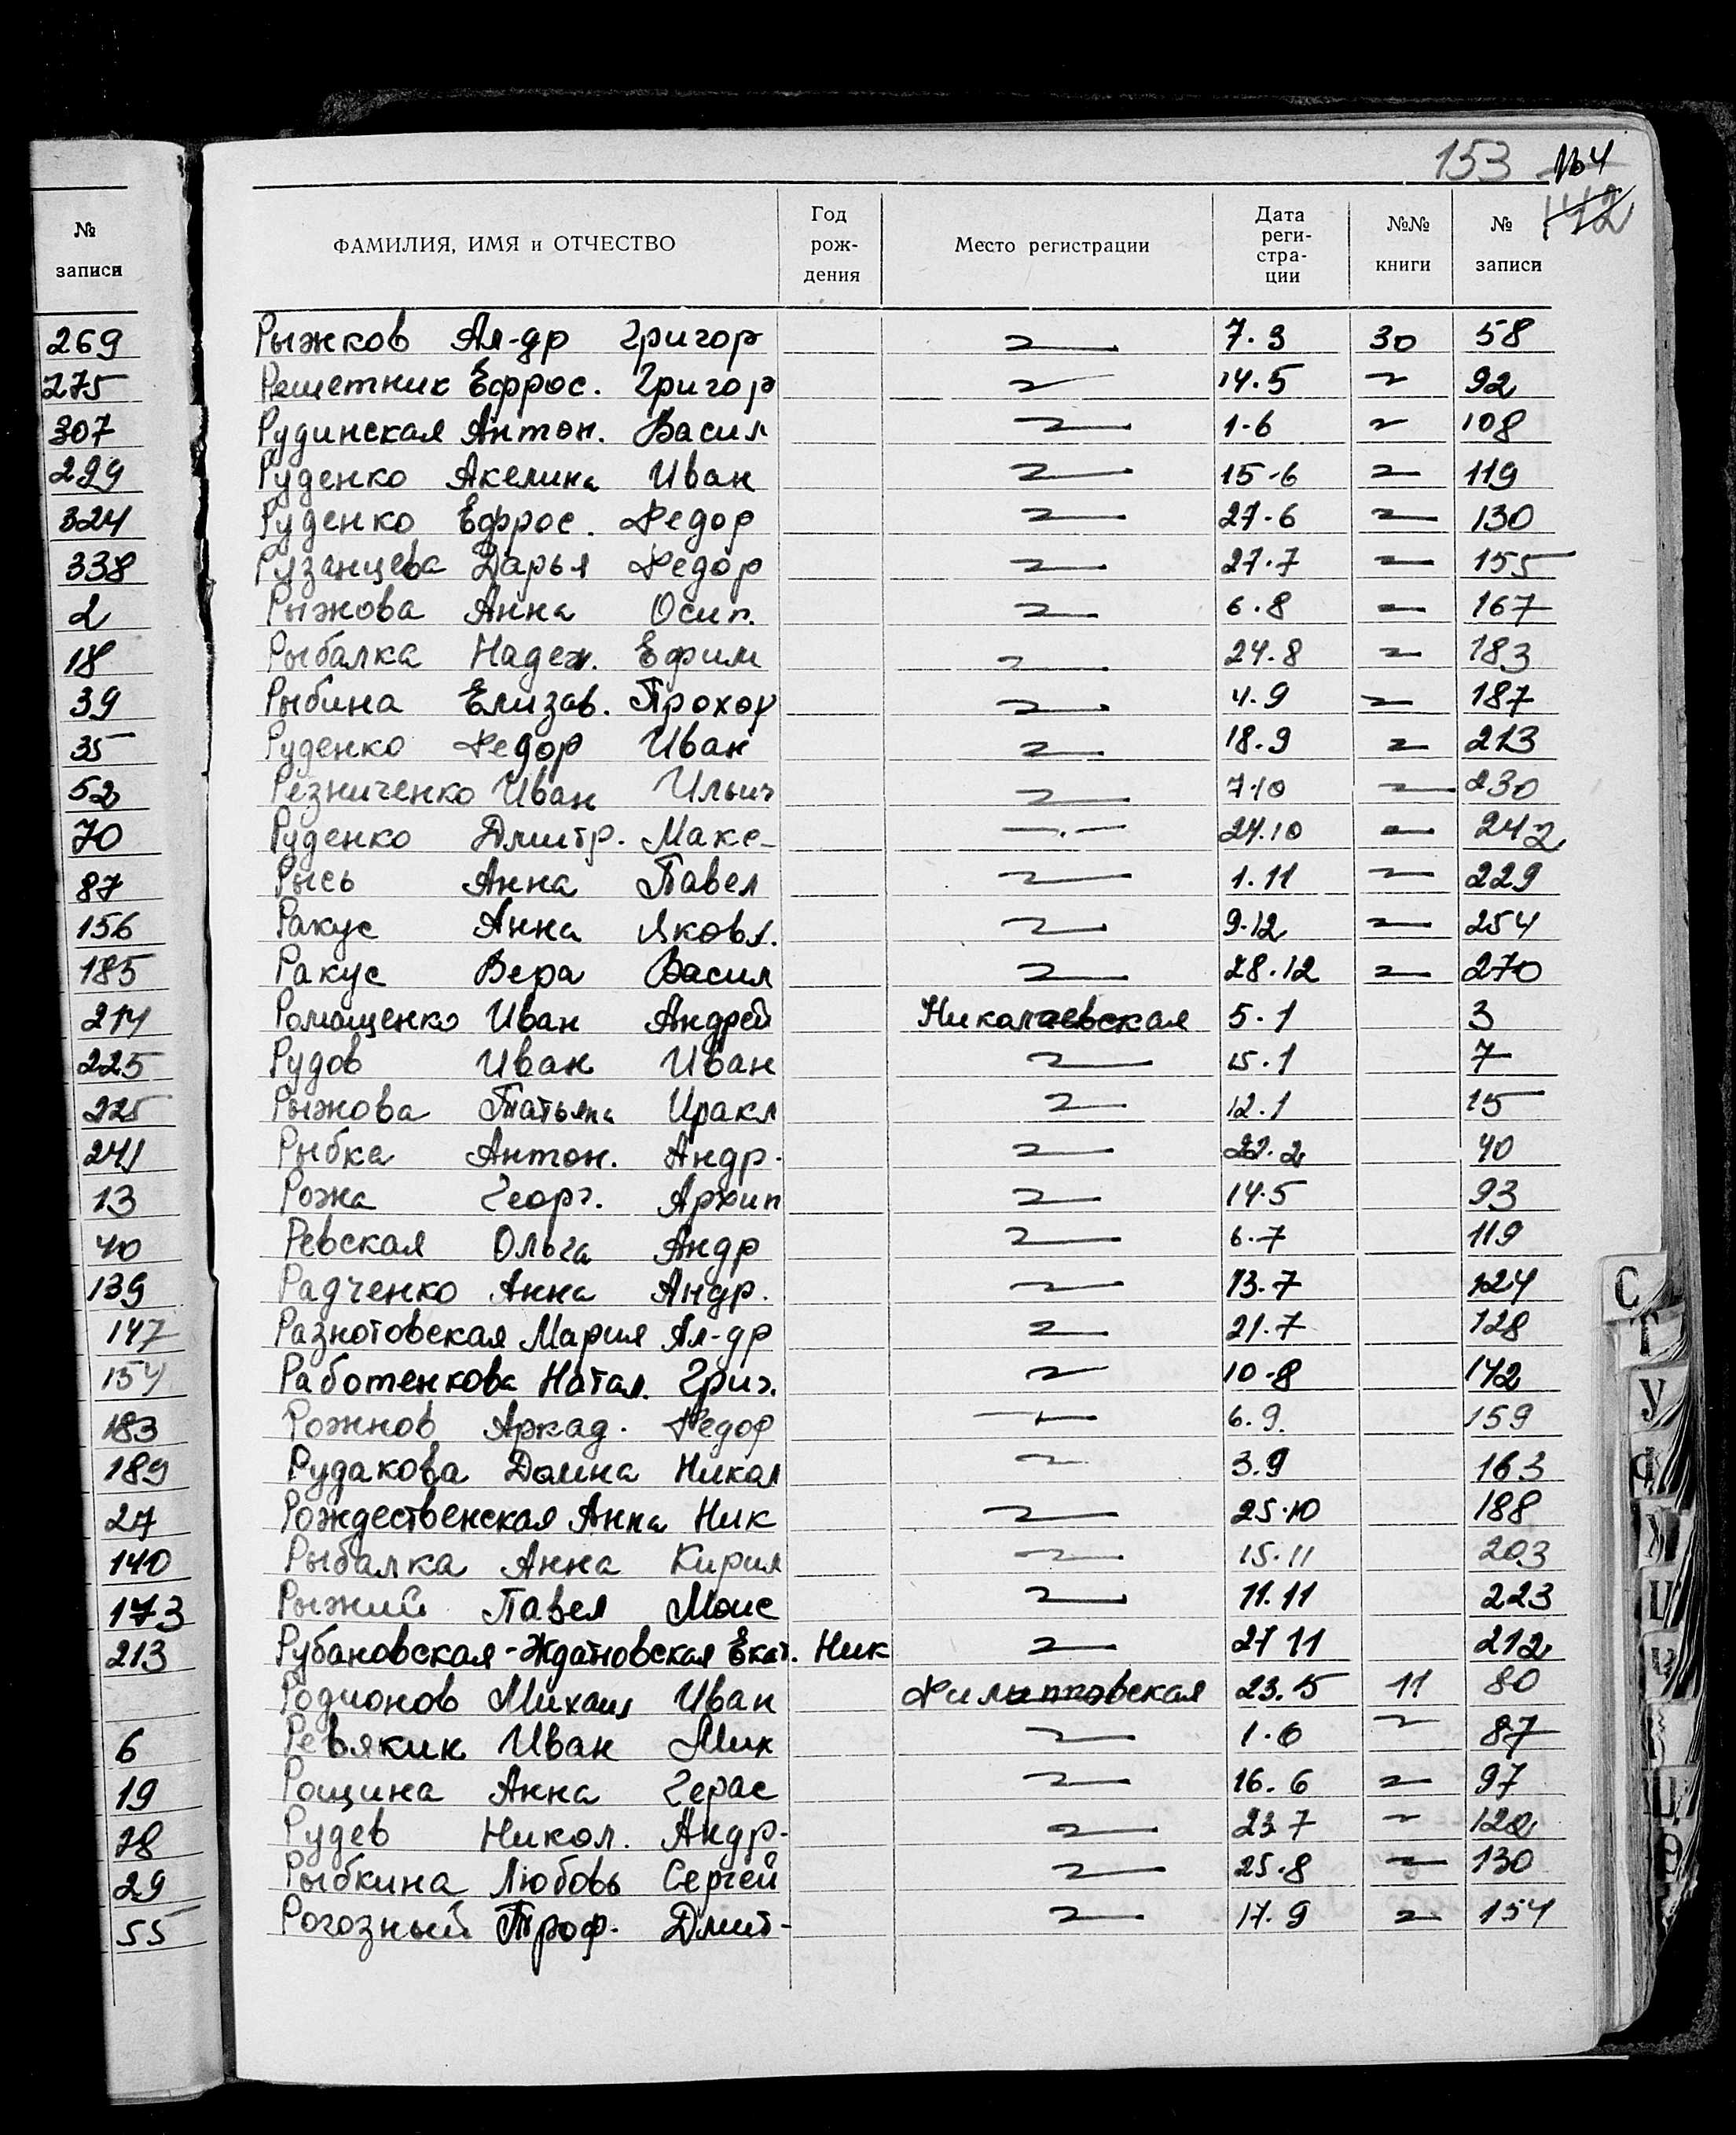 153 164
142
№ записи
ФАМИЛИЯ, ИМЯ и ОТЧЕСТВО Год рождения Место регистрации Дата регистрации №№ книги № записи
269 Рыжков Ал-др Григор 7.3 30 58
275 Решетник Ефрос. Григор 14.5 92
307 Рудинская Антон. Васил 1-6 108
299 Руденко Акелина Иван 15-6 119
324 Руденко Ефрос. Федор 27-6 130
338 Рязанцева Дарья Федор 27.7 155
2 Рыжова Анна Осип. 6.8 167
18 Рыбалка Надеж. Ефим 24.8 183
39 Рыбина Елизав. Прохор 4.9 187
35 Руденко Федор Иван 18.9 213
52 Резниченко Иван Ильич 7.10 230
70 Руденко Дмитр. Макс- 24.10 242
87 Рысь Анна Павел 1.11 229
156 Ракус Анна Яковл. 9.12 254
185 Ракус Вера Васил 28.12 270
214 Ромащенко Иван Андрей Николаевская 5.1 3
225 Рудов Иван Иван 15.1 7
225 Рыжова Татьяна Иракл 12.1 15
241 Рыбка Антон. Андр. 22.2 40
13 Рожа Георг. Архип 14.5 93
40 Ревская Ольга Андр 6.7 119
139 Радченко Анна Андр. 13.7 124
147 Разнотовская Мария Ал-др 21.7 128
154 Работенкова Натал. Григ. 10-8 142
183 Рожнов Аркад. Федор 6.9. 159
189 Рудакова Домна Никол 3.9 163
27 Рождественская Анна Ник 25.10 188
140 Рыбалка Анна Кирил 15.11 203
173 Рыжий Павел Моис 11.11 223
213 Рубановская-Ждановская Екат. Ник 27 11 212
Родионов Михаил Иван Филипповская 23.5 11 80
6 Ревякин Иван Мих 1.6 87
19 Рощина Анна Герас 16.6 97
28 Рудев Никол. Андр- 23 7 120
29 Рыбкина Любовь Сергей 25.8 130
55 Рогозный Троф. Дмит- 17.9 154
С
Т
У
Ф
Х
Ц